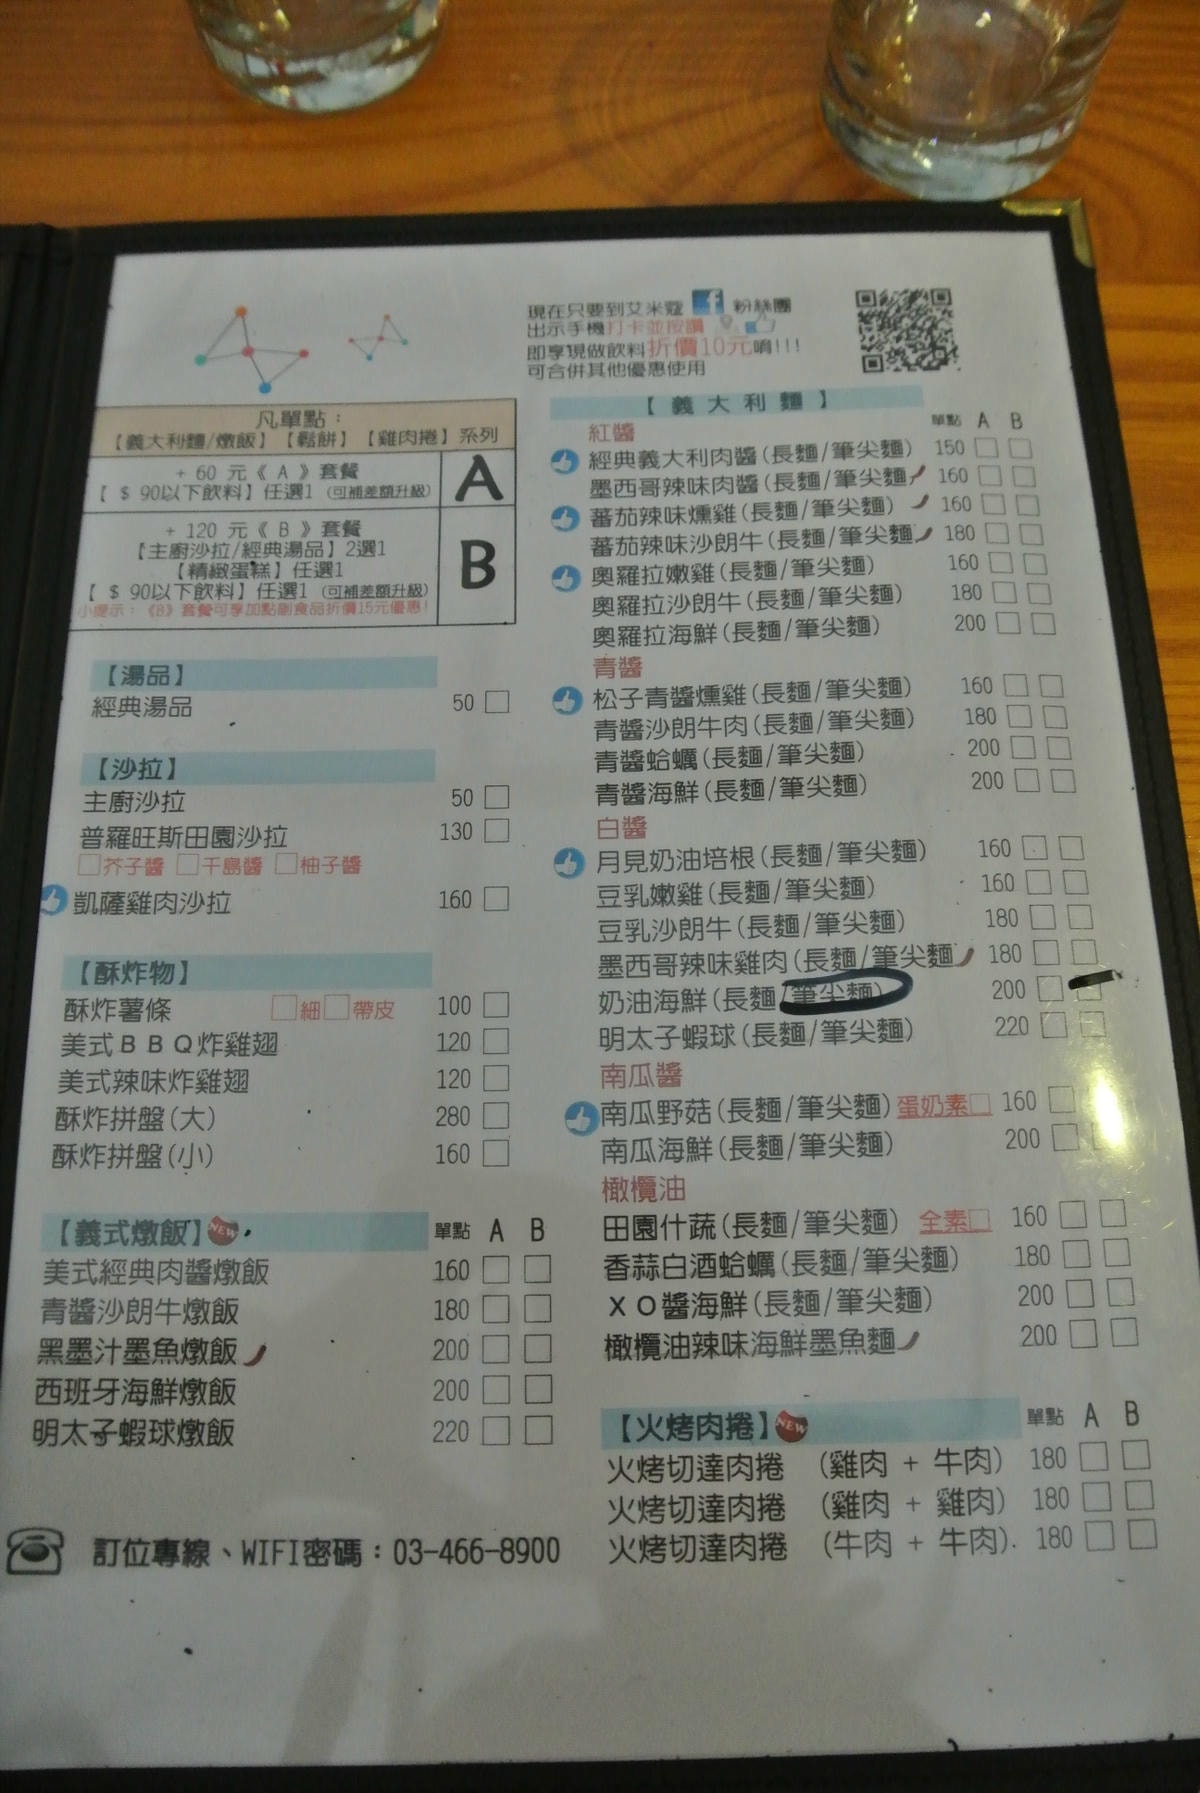 現在只要到艾米蔻 f 粉絲團
出示手機打卡並按讚
即享現做飲料折價10元唷!!!
可合併其他優惠使用
凡單點：
【義大利麵/燉飯】【鬆餅】【雞肉捲】系列
+ 60 元《 A 》套餐
【 $ 90以下飲料】任選1 (可補差額升級)
A
+ 120 元《 B 》套餐
【主廚沙拉/經典湯品】2選1
【精緻蛋糕】任選1
【 $ 90以下飲料】任選1 (可補差額升級)
小提示：《B》套餐可享加點副食品折價15元優惠!
B
【湯品】
經典湯品 50
【沙拉】
主廚沙拉 50
普羅旺斯田園沙拉 130
芥子醬 千島醬 柚子醬
凱薩雞肉沙拉 160
【酥炸物】
酥炸薯條 細 帶皮 100
美式BBQ炸雞翅 120
美式辣味炸雞翅 120
酥炸拼盤(大) 280
酥炸拼盤(小) 160
【義式燉飯】NEW 單點 A B
美式經典肉醬燉飯 160
青醬沙朗牛燉飯 180
黑墨汁墨魚燉飯 200
西班牙海鮮燉飯 200
明太子蝦球燉飯 220
【義大利麵】
單點 A B
紅醬
經典義大利肉醬(長麵/筆尖麵) 150
墨西哥辣味肉醬(長麵/筆尖麵) 160
蕃茄辣味燻雞(長麵/筆尖麵) 160
蕃茄辣味沙朗牛(長麵/筆尖麵) 180
奧羅拉嫩雞(長麵/筆尖麵) 160
奧羅拉沙朗牛(長麵/筆尖麵) 180
奧羅拉海鮮(長麵/筆尖麵) 200
青醬
松子青醬燻雞(長麵/筆尖麵) 160
青醬沙朗牛肉(長麵/筆尖麵) 180
青醬蛤蠣(長麵/筆尖麵) 200
青醬海鮮(長麵/筆尖麵) 200
白醬
月見奶油培根(長麵/筆尖麵) 160
豆乳嫩雞(長麵/筆尖麵) 160
豆乳沙朗牛(長麵/筆尖麵) 180
墨西哥辣味雞肉(長麵/筆尖麵) 180
奶油海鮮(長麵/筆尖麵) 200
明太子蝦球(長麵/筆尖麵) 220
南瓜醬
南瓜野菇(長麵/筆尖麵) 蛋奶素 160
南瓜海鮮(長麵/筆尖麵) 200
橄欖油
田園什蔬(長麵/筆尖麵) 全素 160
香蒜白酒蛤蠣(長麵/筆尖麵) 180
XO醬海鮮(長麵/筆尖麵) 200
橄欖油辣味海鮮墨魚麵 200
【火烤肉捲】NEW 單點 A B
火烤切達肉捲 (雞肉 + 牛肉) 180
火烤切達肉捲 (雞肉 + 雞肉) 180
火烤切達肉捲 (牛肉 + 牛肉) 180
訂位專線、WIFI密碼：03-466-8900